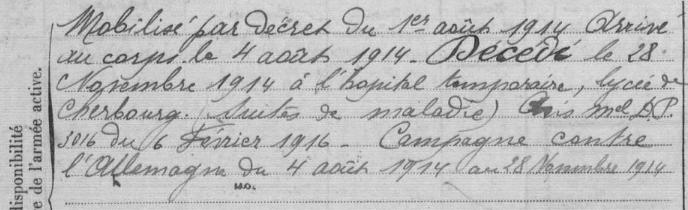 Mobilisé par décret du 1er août 1914 Arrivé
au corps le 4 août 1914. Décédé le 28
Novembre 1914 à l'hopital temporaire, lycée de
Cherbourg. (suites de maladie) Avis mel D.P.
3016 du 6 Février 1916 - Campagne contre
l'Allemagne du 4 août 1914 au 28 Novembre 1914
disponibilité
e de l'armée active.